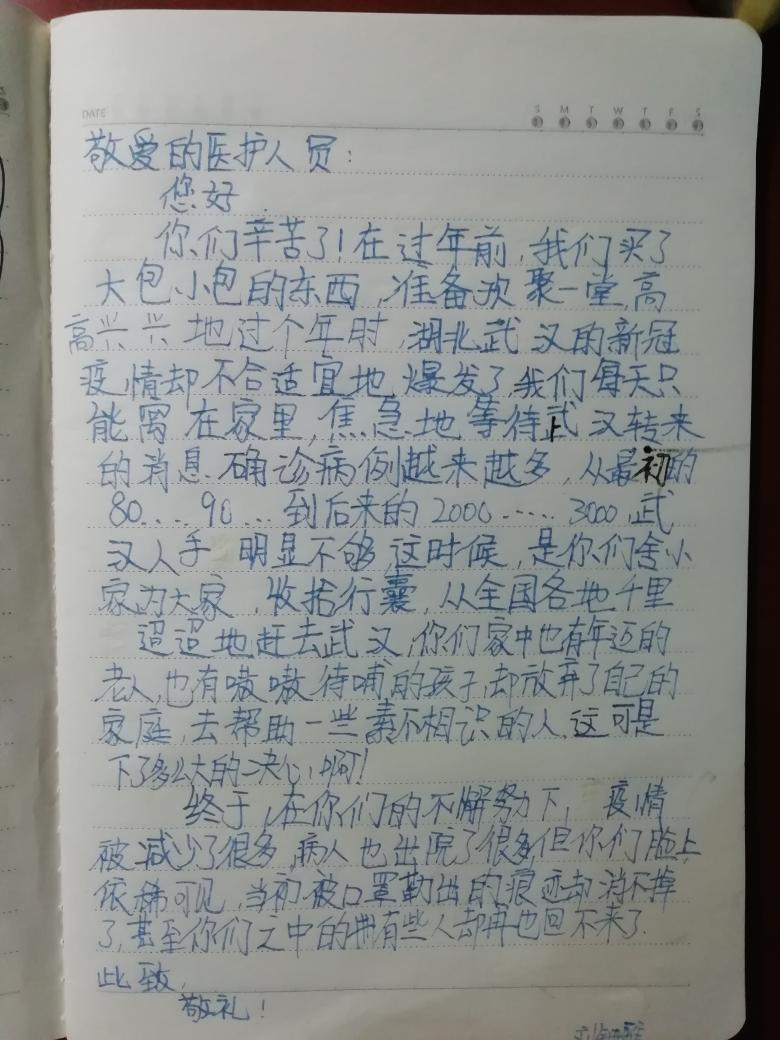 DATE
S M T W T F S
敬爱的医护人员:
您好.
你们辛苦了!在过年前,我们买了
大包小包的东西,准备欢聚一堂,高
高兴兴地过个年时,湖北武汉的新冠
疫情却不合适宜地爆发了,我们每天只
能窝在家里,焦急地等待武汉转来
的消息.确诊病例越来越多,从最初的
80....90...到后来的2000......3000,武
汉人手明显不够,这时候,是你们舍小
家为大家,收拾行囊,从全国各地千里
迢迢地赶去武汉,你们家中也有年迈的
老人,也有嗷嗷待哺的孩子,却放弃了自己的
家庭,去帮助一些素不相识的人,这可是
下了多么大的决心啊!
终于,在你们的不懈努力下,疫情
被减少了很多,病人也出院了很多,但你们脸上
依稀可见,当初被口罩勒出的痕迹却消不掉
了,甚至你们之中的有些人却再也回不来了.
此致,
敬礼!